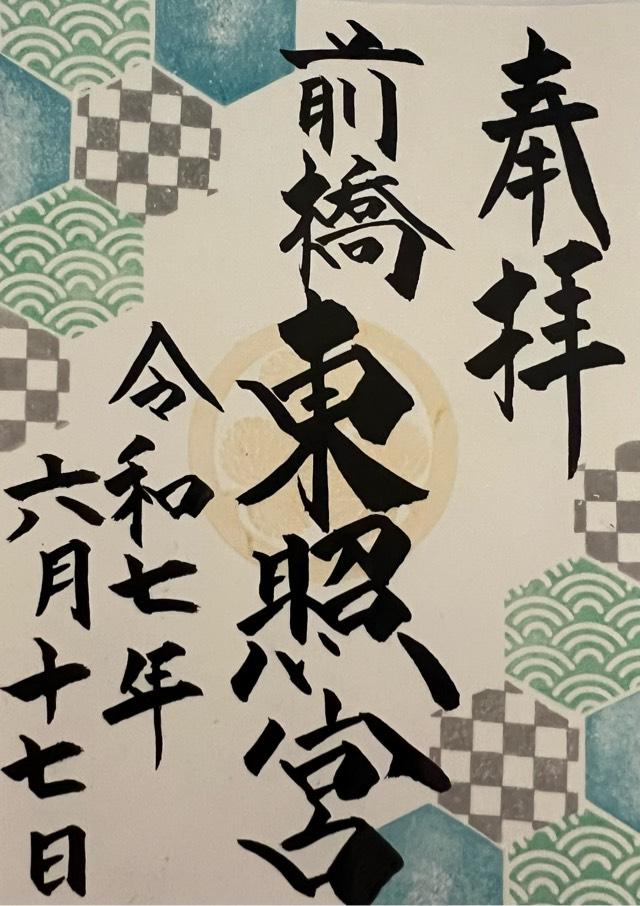 奉拝
前橋東照宮
令和七年
六月十七日